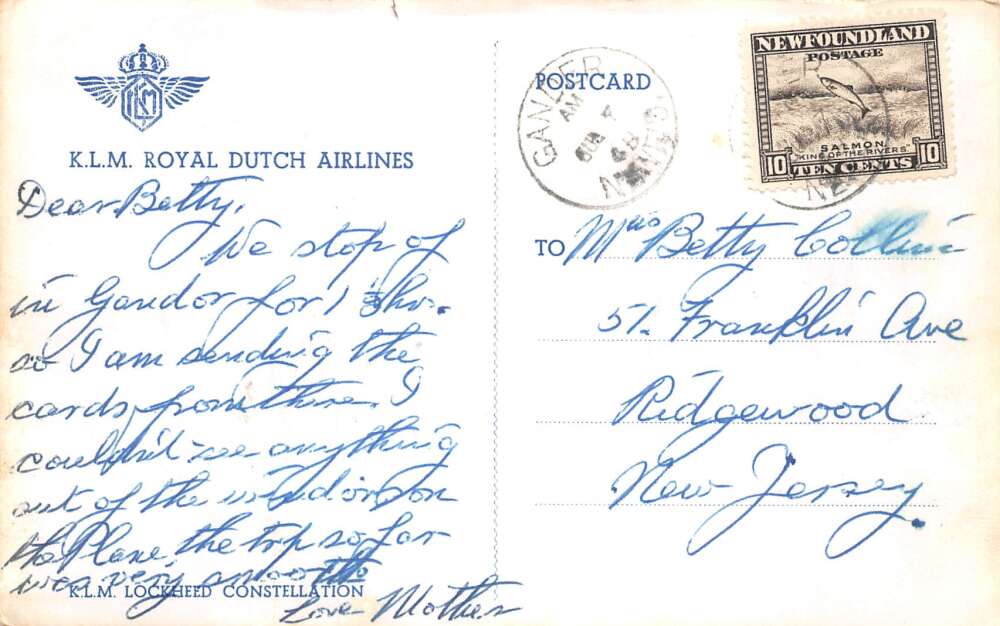 KLM
K.L.M. ROYAL DUTCH AIRLINES
Dear Betty,
We stop of
in Gandor for 1 hr.
so I am sending the
cards from there. I
couldn't see anything
out of the windors on
the Plane, the trip so far
was very smooth
Love Mother
K.L.M. LOCKHEED CONSTELLATION
POSTCARD
GANDER
AM
4
48
NEWFOUNDLAND
POSTAGE
SALMON
"KING OF THE RIVERS"
10 TEN CENTS 10
TO Miss Betty Collins
51. Franklin Ave
Ridgewood
New Jersey.